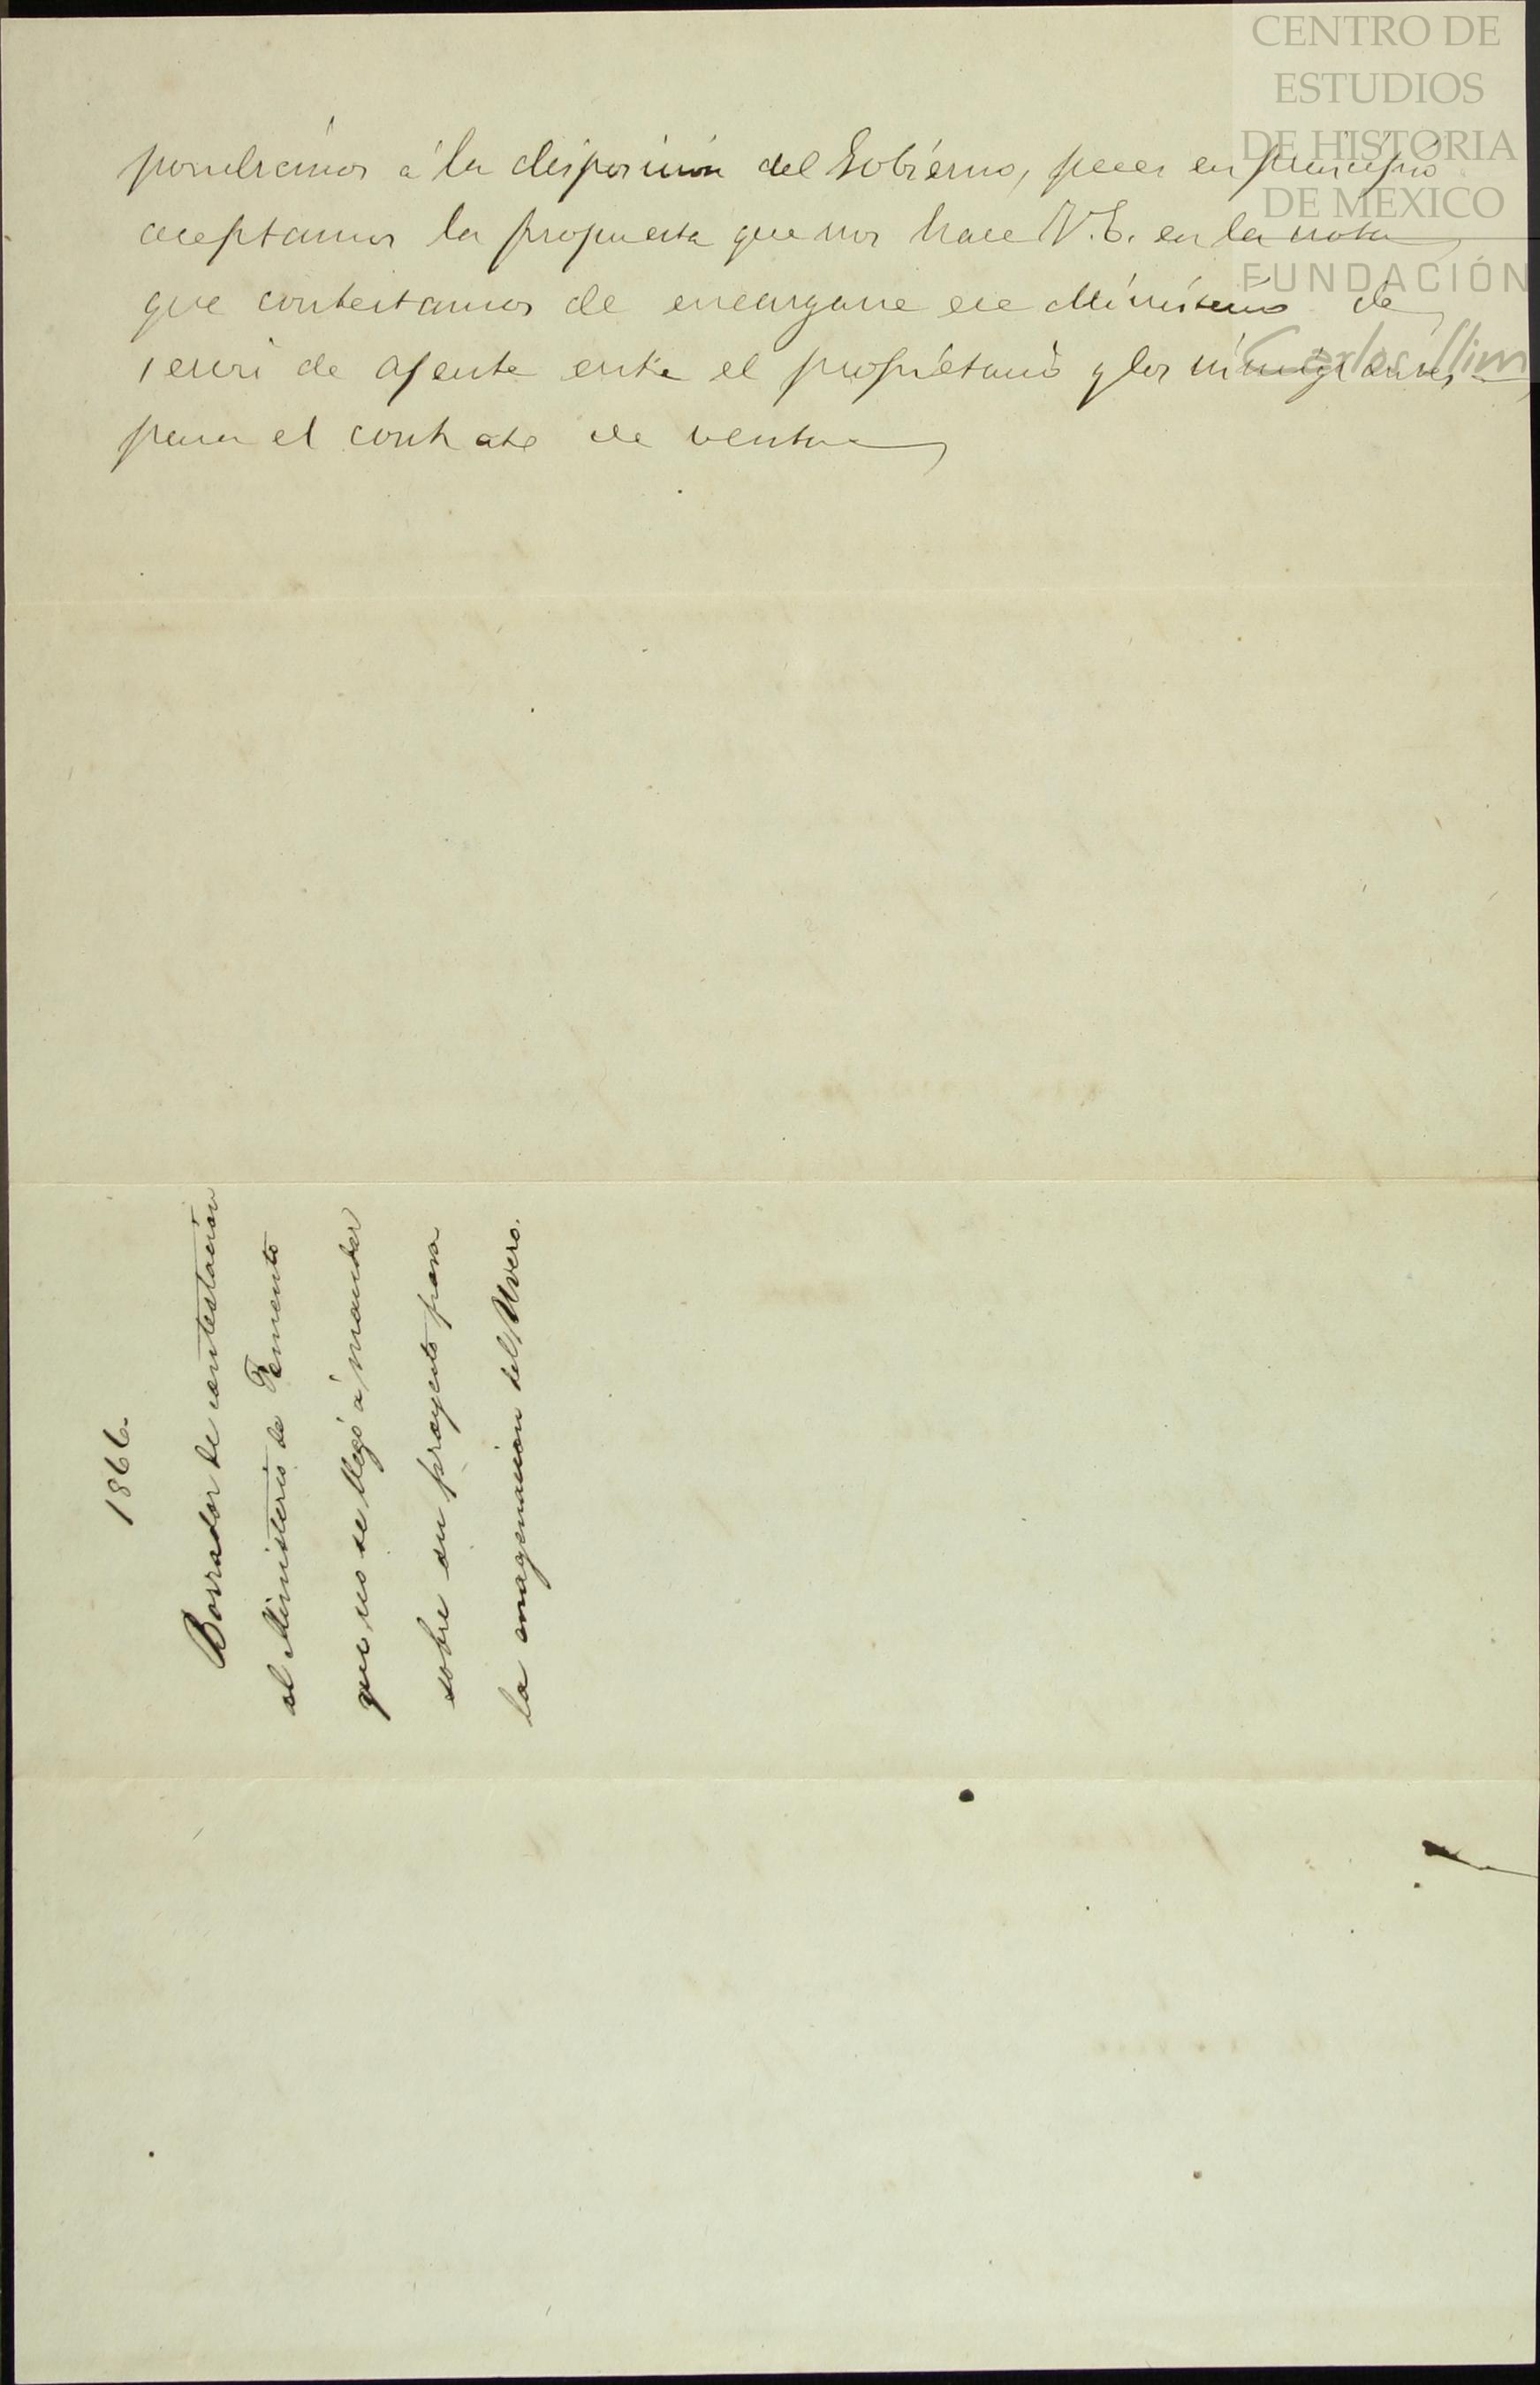 pondremos á la disposicion del Gobierno, pues en principio
aceptamos la propuesta que nos hace V.E. en la nota
que contestamos de encargarse ese Ministerio de
servir de agente entre el propietario y los inmigrantes
para el contrato de venta
1866.
Borrador de contestacion
al Ministerio de Fomento
que no se llegó á mandar
sobre su proyecto para
la enagenacion del Uvero.
CENTRO DE
ESTUDIOS
DE HISTORIA
DE MÉXICO
FUNDACIÓN
Carlos Slim